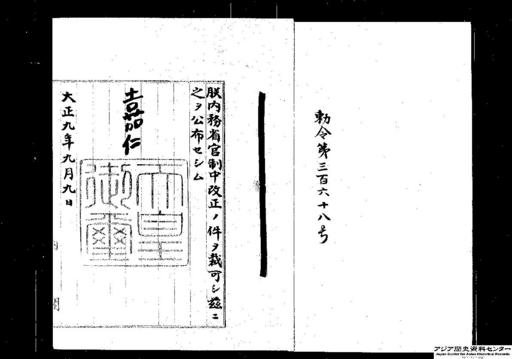 勅令第三百六十八号
朕内務省官制中改正ノ件ヲ裁可シ茲ニ
之ヲ公布セシム
嘉仁
天皇
御璽
大正九年九月九日
内閣
アジア歴史資料センター
Japan Center for Asian Historical Records